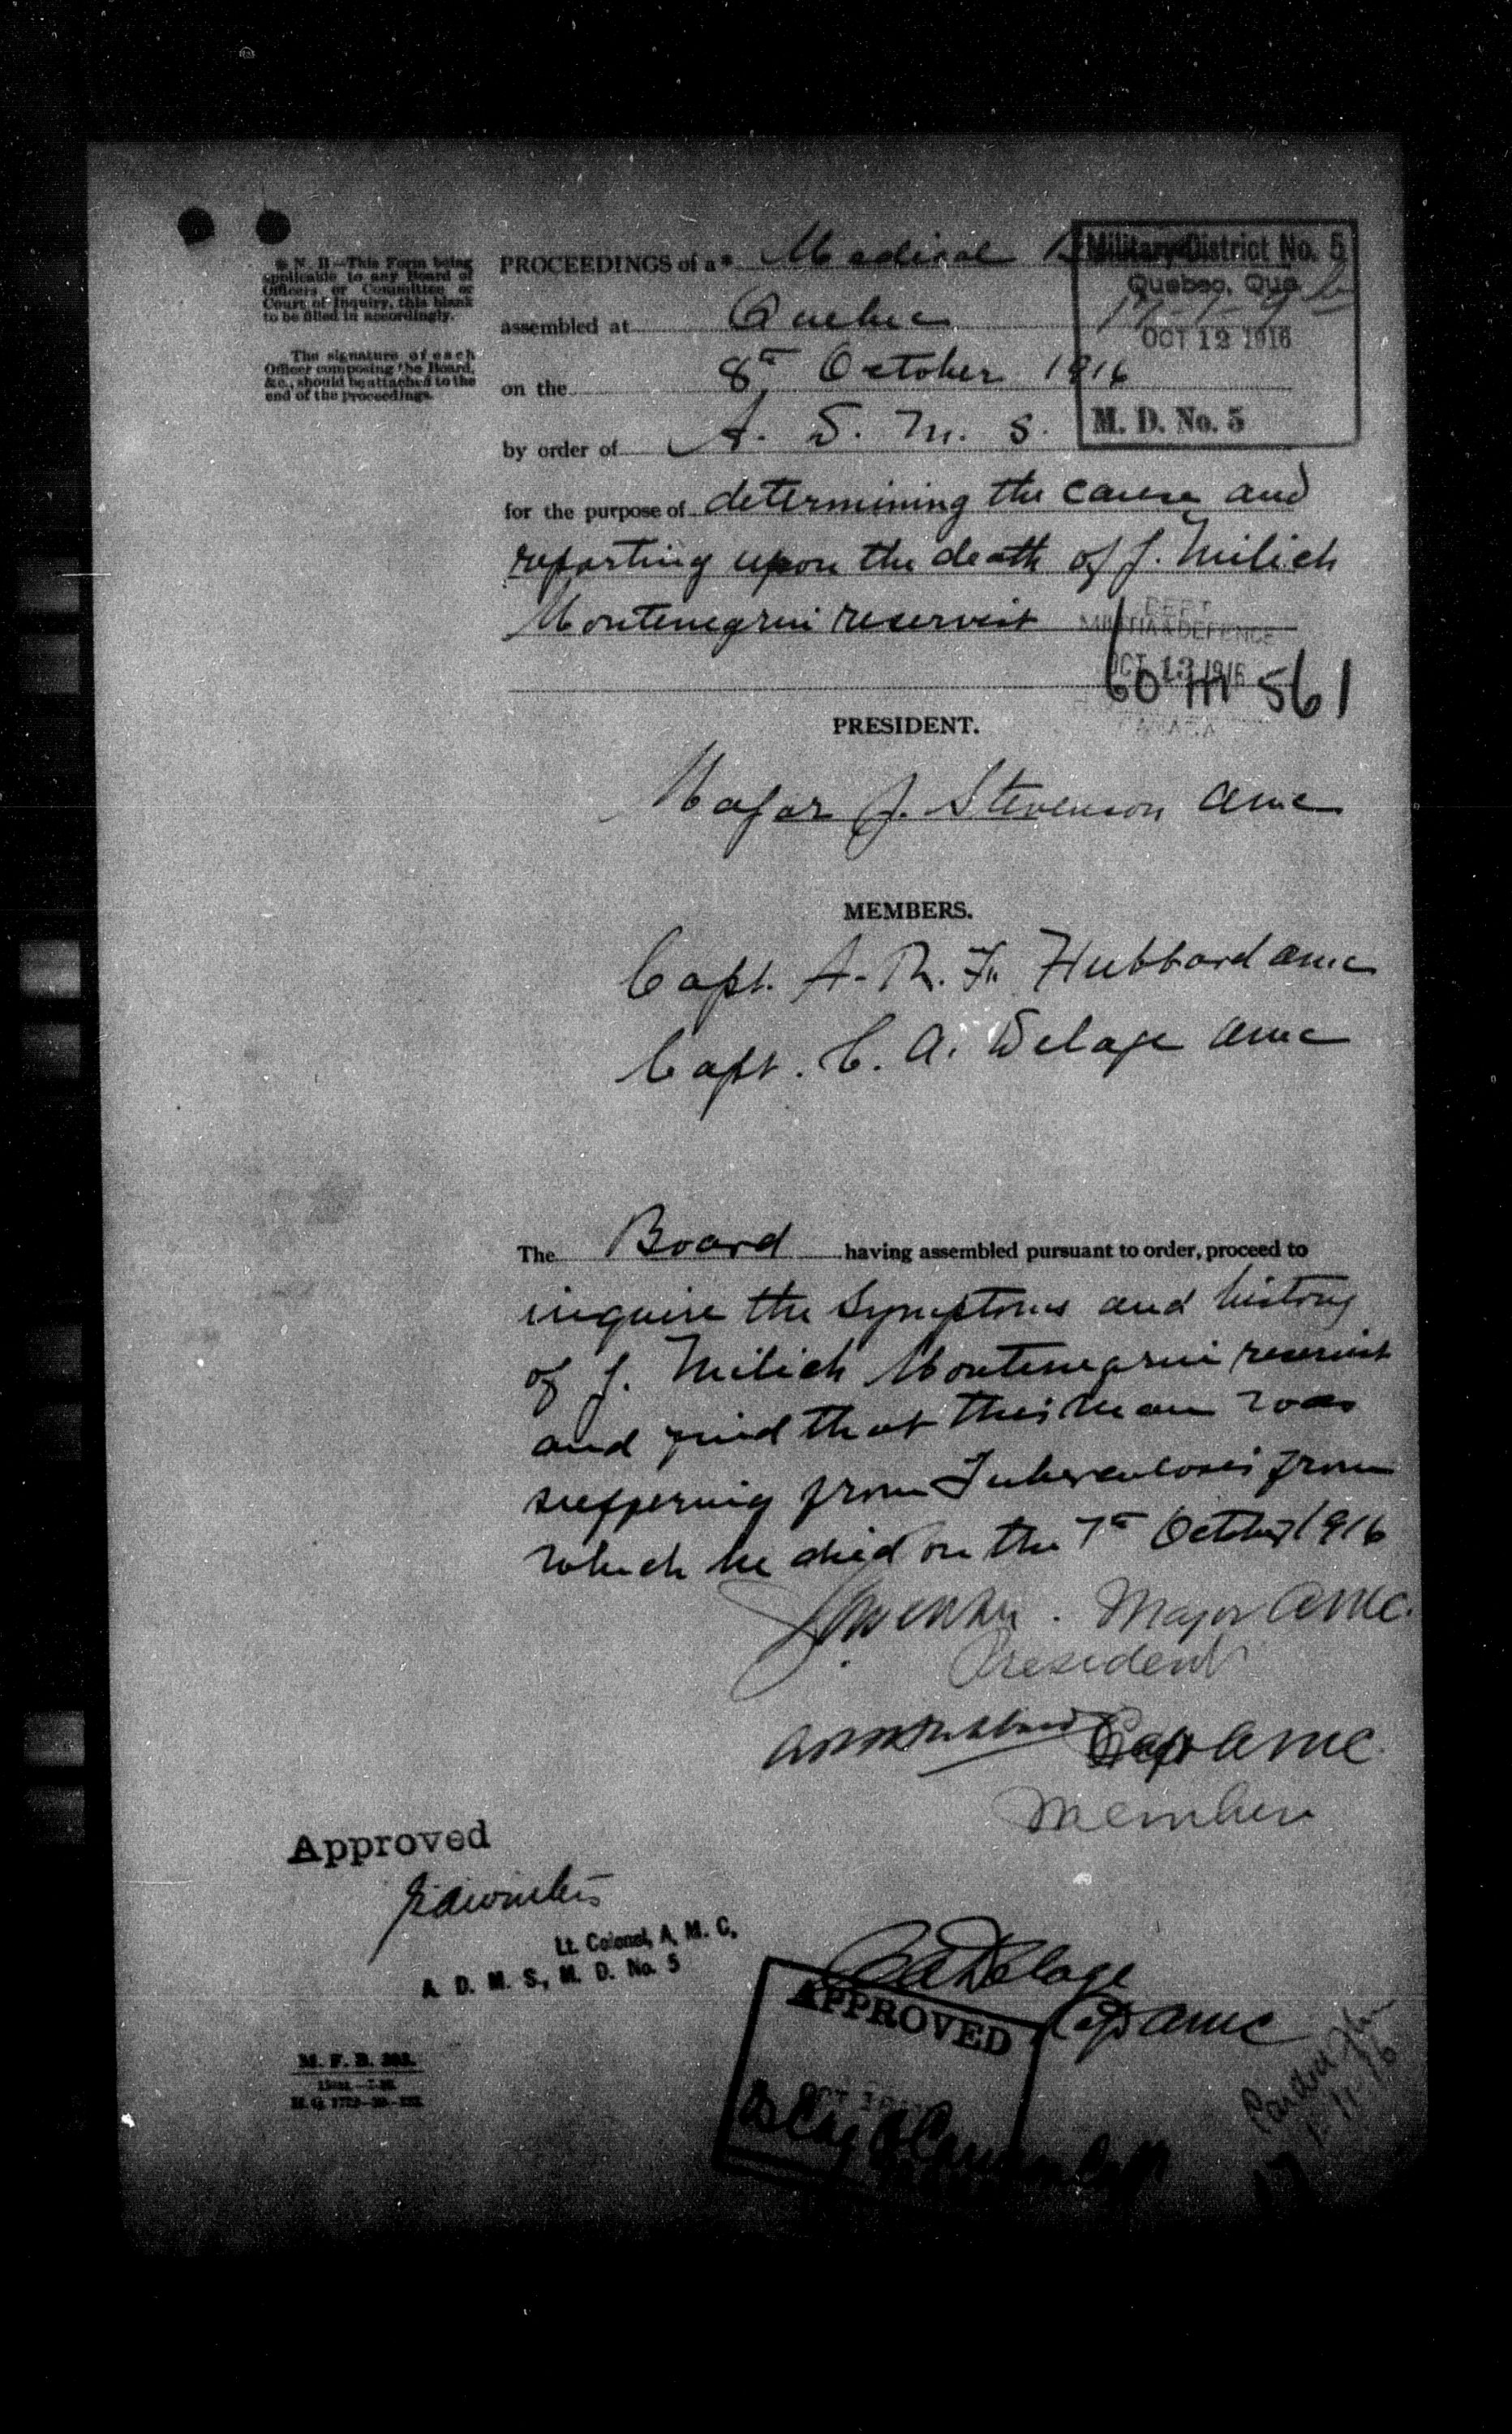 * N. B.—This Form being
applicable to any Board of
Officers or Committee or
Court of Inquiry, this blank
to be filled in accordingly.
The signature of each
Officer composing the Board,
&c., should be attached to the
end of the proceedings.
PROCEEDINGS of a* Medical
Military District No. 5
Quebec, Que
OCT 12 1916
M. D. No. 5
assembled at Quebec
on the 8th October 1916
by order of A. D. M. S.
for the purpose of determining the cause and
reporting upon the death of J. Milich
Montenegrin reservist
DEPT
MILITIA & DEFENCE
OCT 13 1916
CANADA
60 m 561
PRESIDENT.
Major J. Stevenson AMC
MEMBERS.
Capt. A. R. F. Hubbard AMC
Capt. C. A. Delage AMC
The Board having assembled pursuant to order, proceed to
inquire the symptoms and history
of J. Milich Montenegrin reservist
and find that this man was
suffering from Tuberculosis from
which he died on the 7th October 1916
Major AMC.
President
Hubbard Capt AMC
Member
Approved
Lt. Colonel, A. M. C,
A. D. M. S., M. D. No. 5
CA Delage
Capt AMC
APPROVED
OCT
M. F. B. 303.